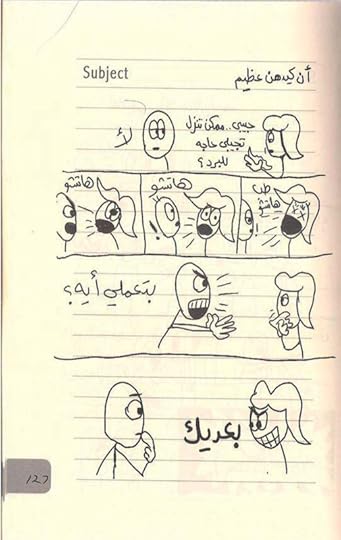 Subject
أن كيدهن عظيم
حبيبي.. ممكن تنزل
تجيبلي حاجه
للبرد؟
لأ
طب
هاتشو
هاتشو
هاتشو
بتعملي أيه؟
بعديك
127